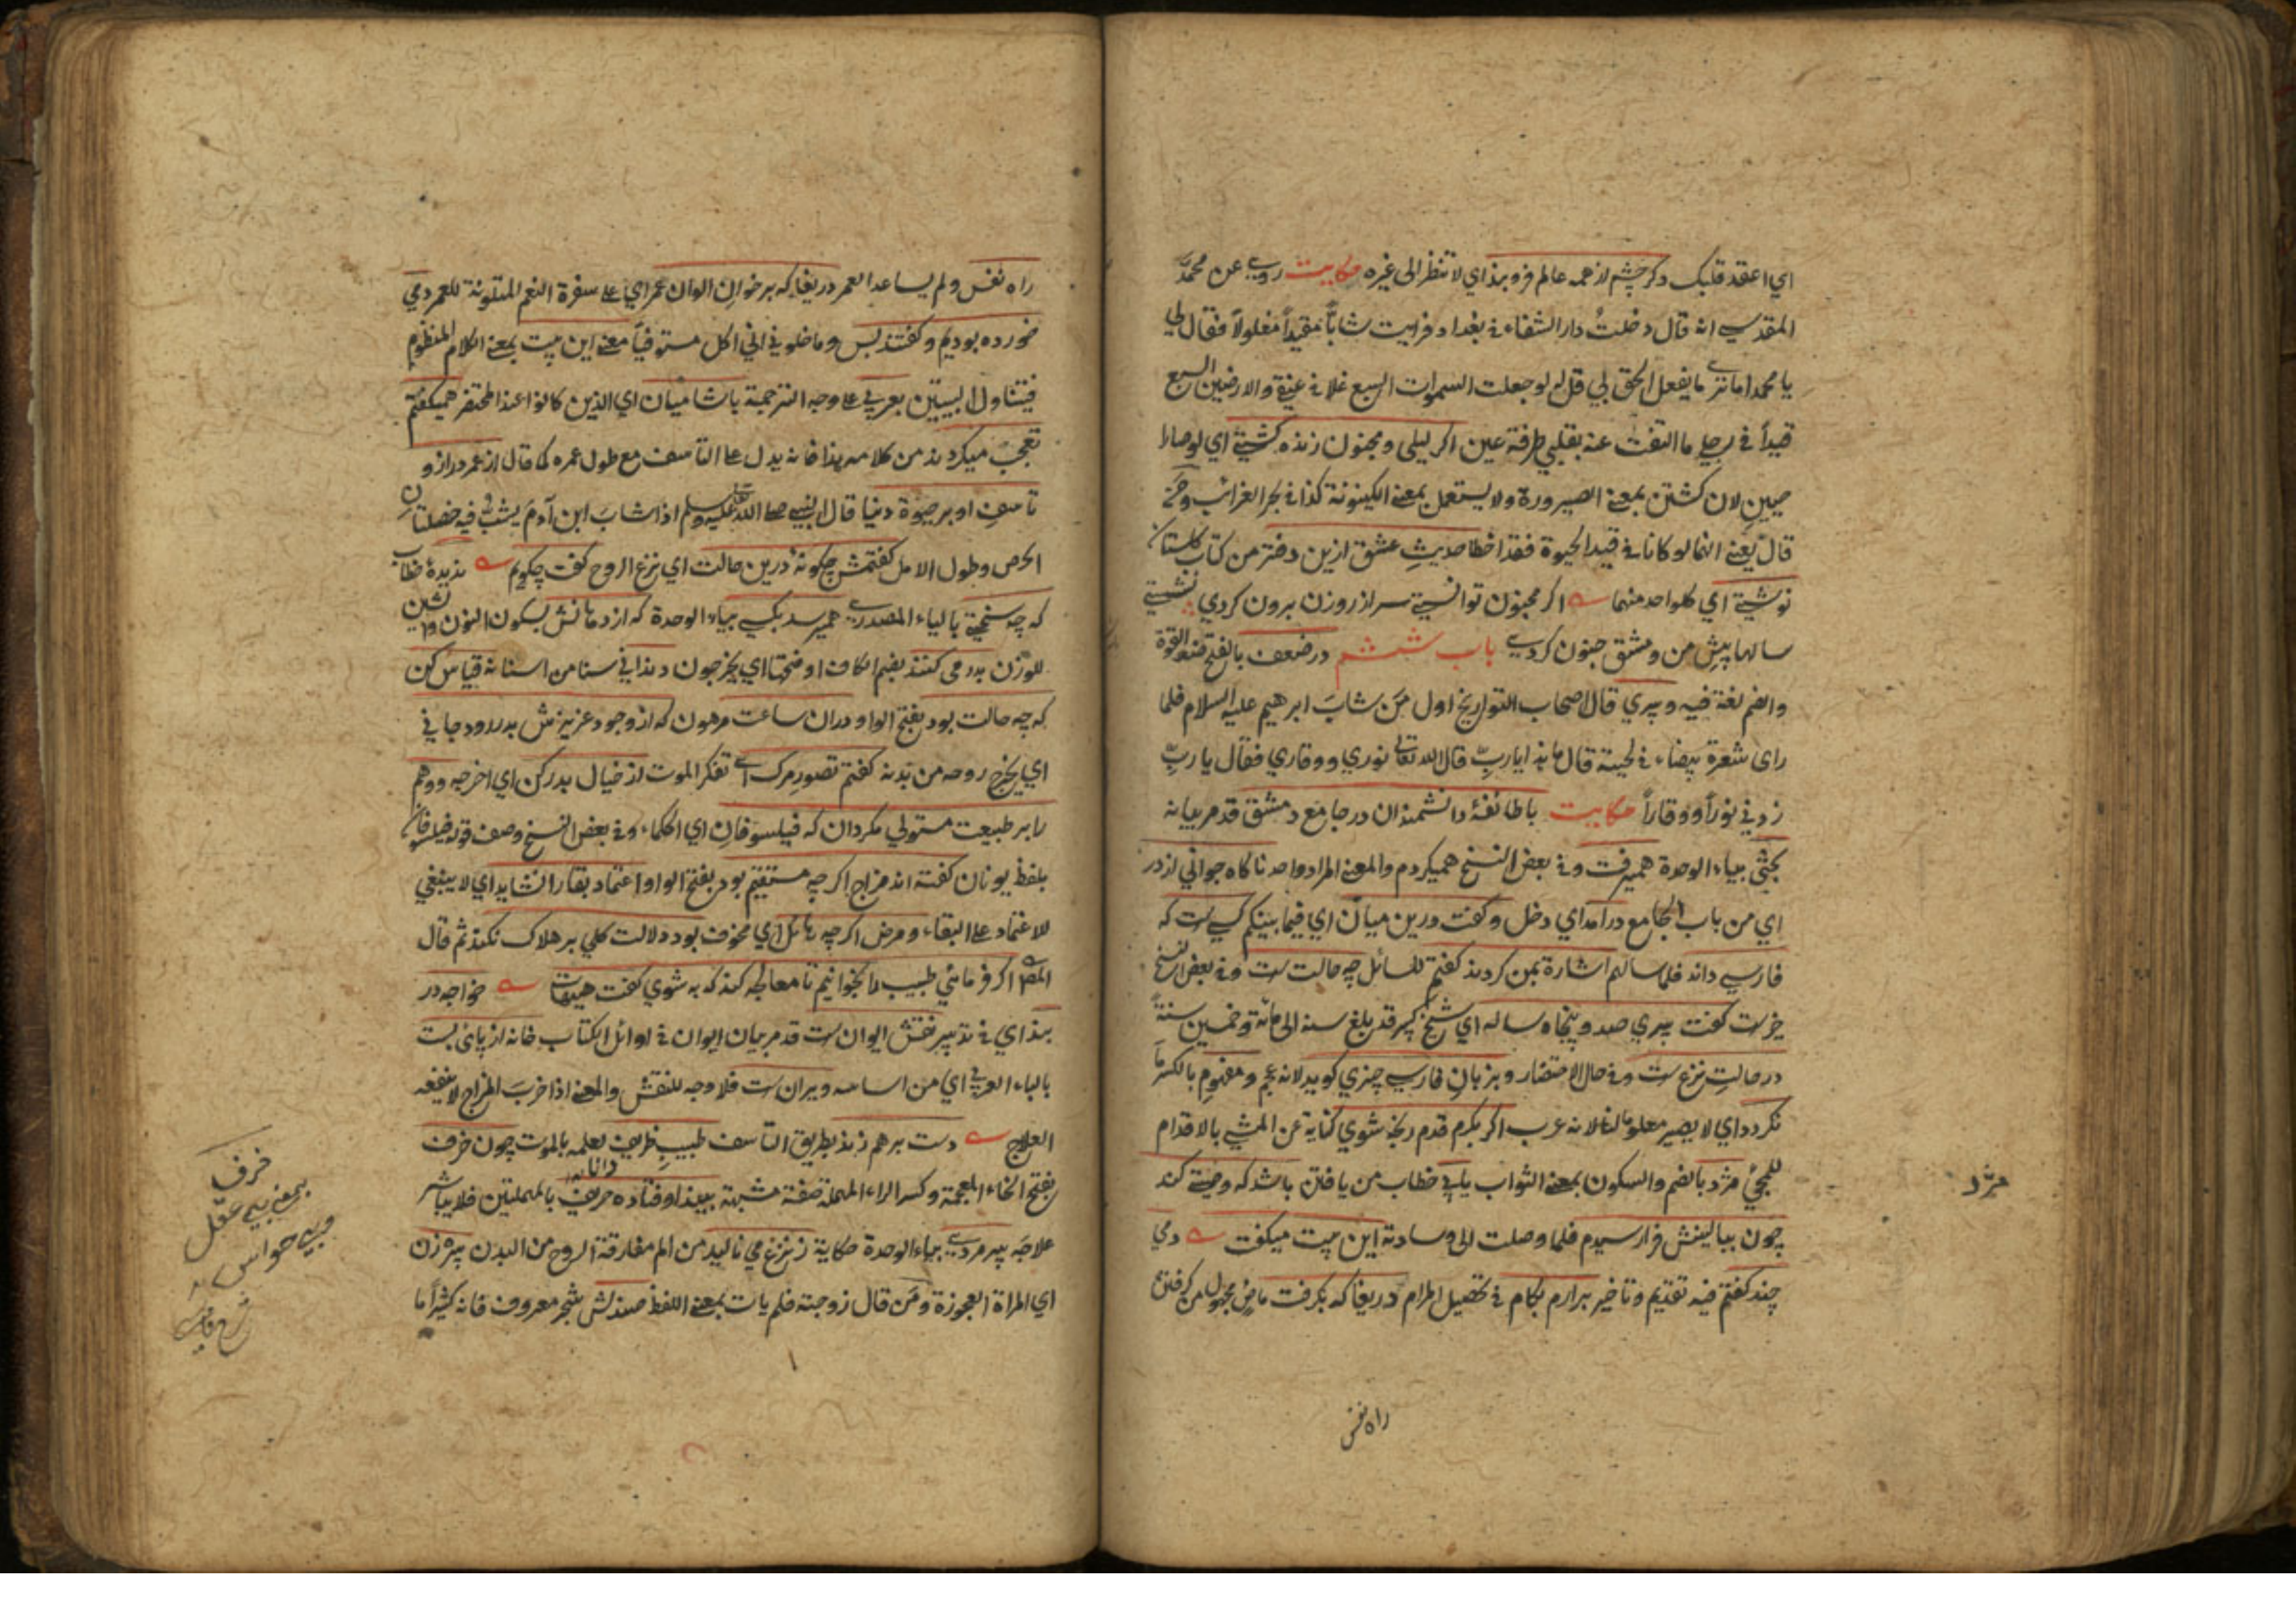 اي اعقد قلبك دكر چشم از همه عالم فرو بند اي لا تنظر الى غيره حكايت روي عن محمد
المقدسي انه قال دخلتُ دار الشفاء في بغداد فرايت شاباً مقيداً مغلولاً فقال لي
يا محمد اما ترى ما يفعل الحق لي قل له لو جعلت السموات السبع غلا في عنقي والارضين السبع
قيداً في رجلي ما التفت عنه بقلبي طرفة عين اكر ليلى ومجنون زنده كشتي اي لو صارا
حيين لان كشتن بمعنى الصيرورة ولا يستعمل بمعنى الكينونة كذا في بحر الغرائب ومن
قال يعني انهما لو كانا في قيد الحيوة فقد اخطا حديثِ عشق ازين دفتر من كتاب كلستان
نوشتي اي كلواحد منهما اكر مجنون توانستي سر از روزن برون كردي نشستي
سالها پيشِ من و مشق جنون كردي باب ششم در ضعف بالفتح ضد القوة
والضم لغة فيه و پيري قال اصحاب التواريخ اول مَن شابَ ابرهيم عليه السلام فلما
راى شعرة بيضاء في لحيته قال ما هذا يا ربّ قال الله تعالى نوري ووقاري فقال يا ربّ
زدني نوراً ووقاراً حكايت با طائفۀ دانشمندان در جامع دمشق قد مر بيانه
بحثي بياء الوحدة هميرفت وفي بعض النسخ هميكردم والمعنى المراد واحد ناكاه جواني از در
اي من باب الجامع درآمد اي دخل وكفت درين ميان اي فيما بينكم كسي ست كه
فارسي داند فلما سالهم اشارة بمن كردند كفتم للسائل چه حالت ست وفي بعض النسخ
خيرست كفت پيري صد و پنجاه ساله اي شيخ كبير قد بلغ سنه الى مائة وخمسين سنةً
در حالتِ نزع ست وفي حال الاحتضار و بزبانِ فارسي چيزي كويد لانه عجم و مفهومِ ما بالكسر
نكردد اي لا يصير معلوما لنا لانه عرب اكر بكرم قدم رنجه شوي كناية عن المشي بالاقدام
للمجئ مزد بالضم والسكون بمعنى الثواب يابي خطاب من يافتن باشد كه وصيتي كند
چون ببالينش فرا رسيدم فلما وصلت الى وسادته اين بيت ميكفت دمي
چند كفتم فيه تقديم وتاخير برارم بكام في تحصيل المرام دريغا كه بكرفت ماضٍ مجهول من كرفتن
راه نفس
مزد
راه نفس ولم يساعد العمر دريغا كه بر خوان الوان عمر اي على سفرة النعم المتلونة للعمر دمي
خورده بوديم وكفتند بس وما خلوني اني اكل مستوفياً معنى اين بيت بمعنى الكلام المنظوم
فيتناول البيتين بعربي على وجه الترجمة با شاميان اي الذين كانوا عند المحتضر هميكفتم
تعجب ميكردند من كلامه هذا فانه يدل على التاسف مع طول عمره كما قال از عمر دراز و
تاسفِ او بر حيوة دنيا قال النبي صلى الله عليه وسلم اذا شابَ ابن آدمَ يشبُّ فيه خصلتانِ
الحرص وطول الامل كفتمش چكونۀ درين حالت اي نزع الروح كفت چكويم نديدۀ خطاب
كه چه سختي بالياء المصدري همي رسد بكسي بياء الوحدة كه از دهانش بسكون النون والشين
للوزن بدر مي كنند بضم الكاف او فتحها اي يخرجون دنداني سنا من اسنانه قياس كن
كه چه حالت بود بفتح الواو در ان ساعت مرهون كه از وجود عزيزش بدر رود جاني
اي يخرج روحه من بدنه كفتم تصور مرك اي تفكر الموت از خيال بدر كن اي اخرجه ووهم
را بر طبيعت مستولي مكردان كه فيلسوفان اي الحكماء وفي بعض النسخ وصف قوله فيلسوفان
بلفظ يونان كفته اند مزاج اكرچه مستقيم بود بفتح الواو اعتماد بقا را نشايد اي لا ينبغي
للاعتماد على البقاء ومرض اكرچه هائل اي مخوف بود دلالت كلي بر هلاك نكند ثم قال
المص اكر فرمائي طبيب را بخوانيم تا معالجه كند كه به شوي كفت هيهات خواجه در
بند اي في تدبير نقش ايوان ست قد مر بيان ايوان في اوائل الكتاب خانه از پائ بست
بالباء العربي اي من اساسه ويران ست فلا وجه للنقش والمعنى اذا خربَ المزاج لا ينفعه
العلاج دست برهم زند بطريق التاسف طبيبِ ظريف لعلمه بالموت چون خرف
بفتح الخاء المعجمة وكسر الراء المهملة صفة مشبهة بيند اوفتاده حريف بالمهملتين فلا يباشر
علاجَه پير مردي بياء الوحدة حكاية ز نزع مي ناليد من الم مفارقة الروح من البدن پيره زن
اي المراة العجوزة ومَن قال زوجته فلم يات بمعنى اللفظ صندلش شجر معروف فانه كثيراً ما
خرف
بمعنى بي عقل
وبي حواس